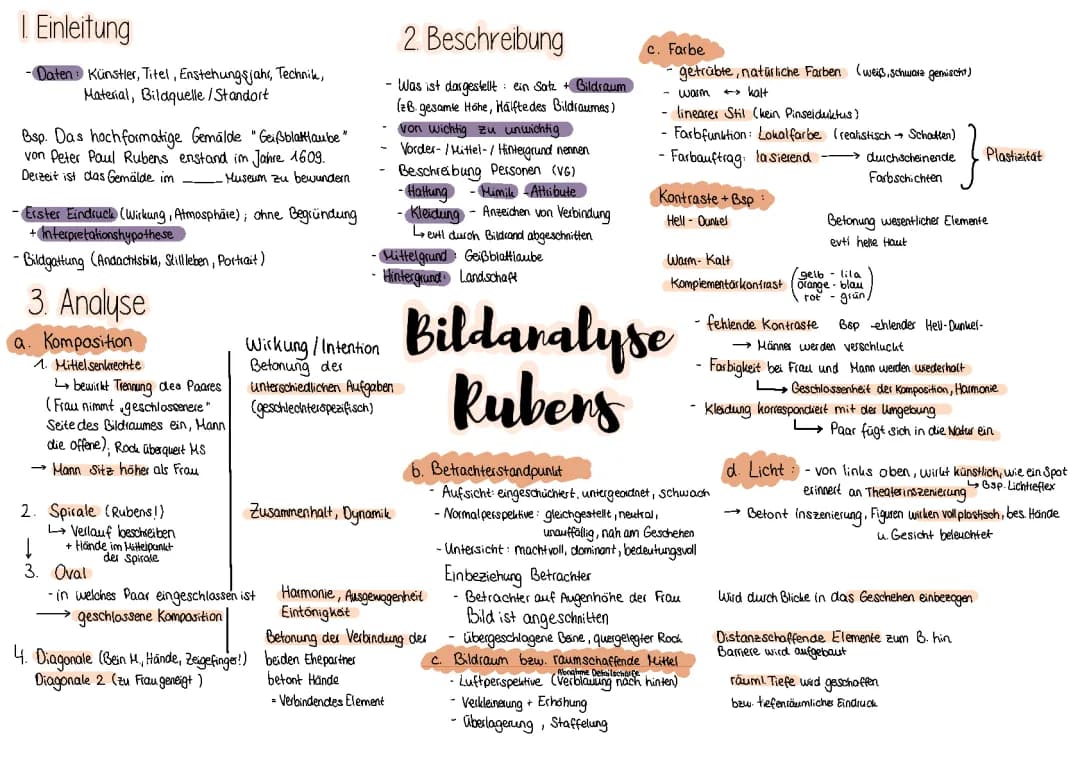 1. Einleitung
- Daten: Künstler, Titel, Enstehungsjahr, Technik,
Material, Bildquelle / Standort
Bsp. Das hochformatige Gemälde "Geißblattlaube"
von Peter Paul Rubens enstand im Jahre 1609.
Derzeit ist das Gemälde im ______ Museum zu bewundern
- Erster Eindruck (Wirkung, Atmosphäre); ohne Begründung
+ Interpretationshypothese
- Bildgattung (Andachtsbild, Stillleben, Portrait)
2. Beschreibung
- Was ist dargestellt: ein Satz + Bildraum
(z.B. gesamte Höhe, Hälfte des Bildraumes)
- von wichtig zu unwichtig
- Vorder- / Mittel- / Hintergrund nennen
- Beschreibung Personen (VG)
- Haltung - Mimik - Attribute
- Kleidung - Anzeichen von Verbindung
↳ evtl durch Bildrand abgeschnitten
- Mittelgrund: Geißblattlaube
- Hintergrund: Landschaft
Bildanalyse
Rubens
3. Analyse
a. Komposition
Wirkung / Intention
1. Mittelsenkrechte
↳ bewirkt Trennung des Paares
(Frau nimmt "geschlossenere"
Seite des Bildraumes ein, Mann
die offene), Rock überquert MS
→ Mann sitz höher als Frau
Betonung der
unterschiedlichen Aufgaben
(geschlechterspezifisch)
2. Spirale (Rubens!)
↳ Verlauf beschreiben
+ Hände im Mittelpunkt
der Spirale
Zusammenhalt, Dynamik
↓
3. Oval
- in welches Paar eingeschlossen ist
→ geschlossene Komposition
Harmonie, Ausgewogenheit
Eintönigkeit
4. Diagonale (Bein M., Hände, Zeigefinger!)
Diagonale 2 (zu Frau geneigt)
Betonung der Verbindung der
beiden Ehepartner
betont Hände
= Verbindendes Element
b. Betrachterstandpunkt
- Aufsicht: eingeschüchtert, untergeordnet, schwach
- Normalperspektive: gleichgestellt, neutral,
unauffällig, nah am Geschehen
- Untersicht: machtvoll, dominant, bedeutungsvoll
Einbeziehung Betrachter
- Betrachter auf Augenhöhe der Frau
Bild ist angeschnitten
Wird durch Blicke in das Geschehen einbezogen
- übergeschlagene Beine, quergelegter Rock
Distanzschaffende Elemente zum B. hin
Barriere wird aufgebaut
c. Bildraum bzw. raumschaffende Mittel
Abnahme Detailschärfe
- Luftperspektive (Verblauung nach hinten)
- Verkleinerung + Erhöhung
- Überlagerung, Staffelung
räuml. Tiefe wird geschaffen
bzw. tiefenräumlicher Eindruck
c. Farbe
- getrübte, natürliche Farben (weiß, schwarz gemischt)
- warm ↔ kalt
- linearer Stil (kein Pinselduktus)
- Farbfunktion: Lokalfarbe (realistisch → Schatten)
- Farbauftrag: lasierend → durchscheinende
Farbschichten
Plastizität
Kontraste + Bsp:
Hell - Dunkel
Betonung wesentlicher Elemente
evtl helle Haut
Warm - Kalt
Komplementärkontrast (gelb - lila
orange - blau
rot - grün)
- fehlende Kontraste Bsp -ehlender Hell-Dunkel-
→ Männer werden verschluckt
- Farbigkeit bei Frau und Mann werden wiederholt
↳ Geschlossenheit der Komposition, Harmonie
- Kleidung korrespondiert mit der Umgebung
↳ Paar fügt sich in die Natur ein
d. Licht: - von links oben, wirkt künstlich, wie ein Spot
↳ Bsp. Lichtreflex
erinnert an Theaterinszenierung
→ Betont Inszenierung, Figuren wirken vollplastisch, bes. Hände
u. Gesicht beleuchtet